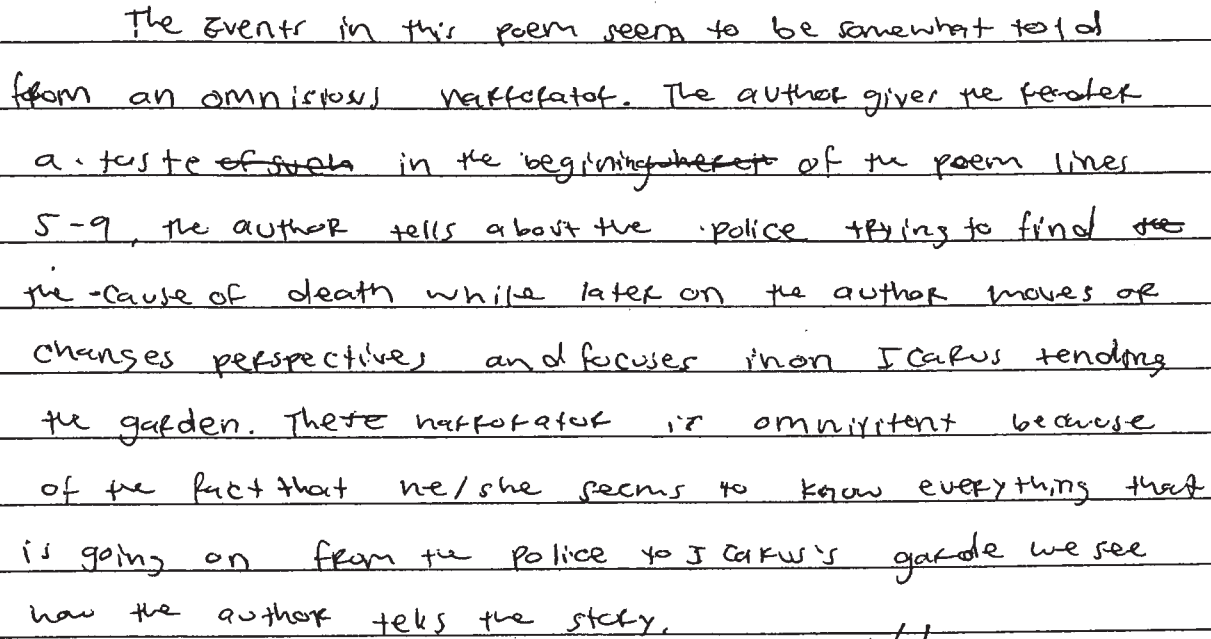 The Events in this poem seem to be somewhat told
from an omnisious narrorator. The author gives the reader
a taste of such in the begining of the poem lines
5-9, the author tells about the police trying to find the
the cause of death while later on the author moves or
changes perspectives and focuses in on Icarus tending
the garden. The narrorator is omnivitent because
of the fact that he/she seems to know everything that
is going on from the police to Icarus's garde we see
how the author tells the story.